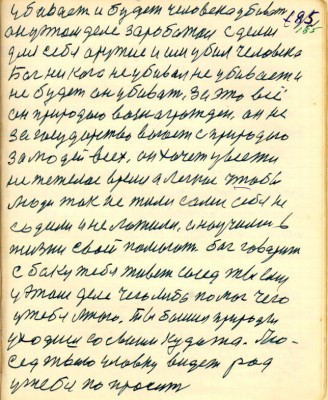 убивает и будет человека убивать
он у этом деле заработал сделал
для себя оружие и им убил человека
Бог никого не убивал не убивает и
не будет он убивать, за это всё
он природою вознагражден, он не
за государство воюет с природою
за людей всех, он хочет увести
не тяжелое время а легкое чтобы
люди так не жили сами себя не
садили и не ложили, а научились в
жизни своей помогать бог говорит
с боку тебя живет сосед твой
у этом деле чего либо помог чего
у тебя много. Ты бойся природы
уходит со своим
сед твой человек видит рад
у тебя попросить
185